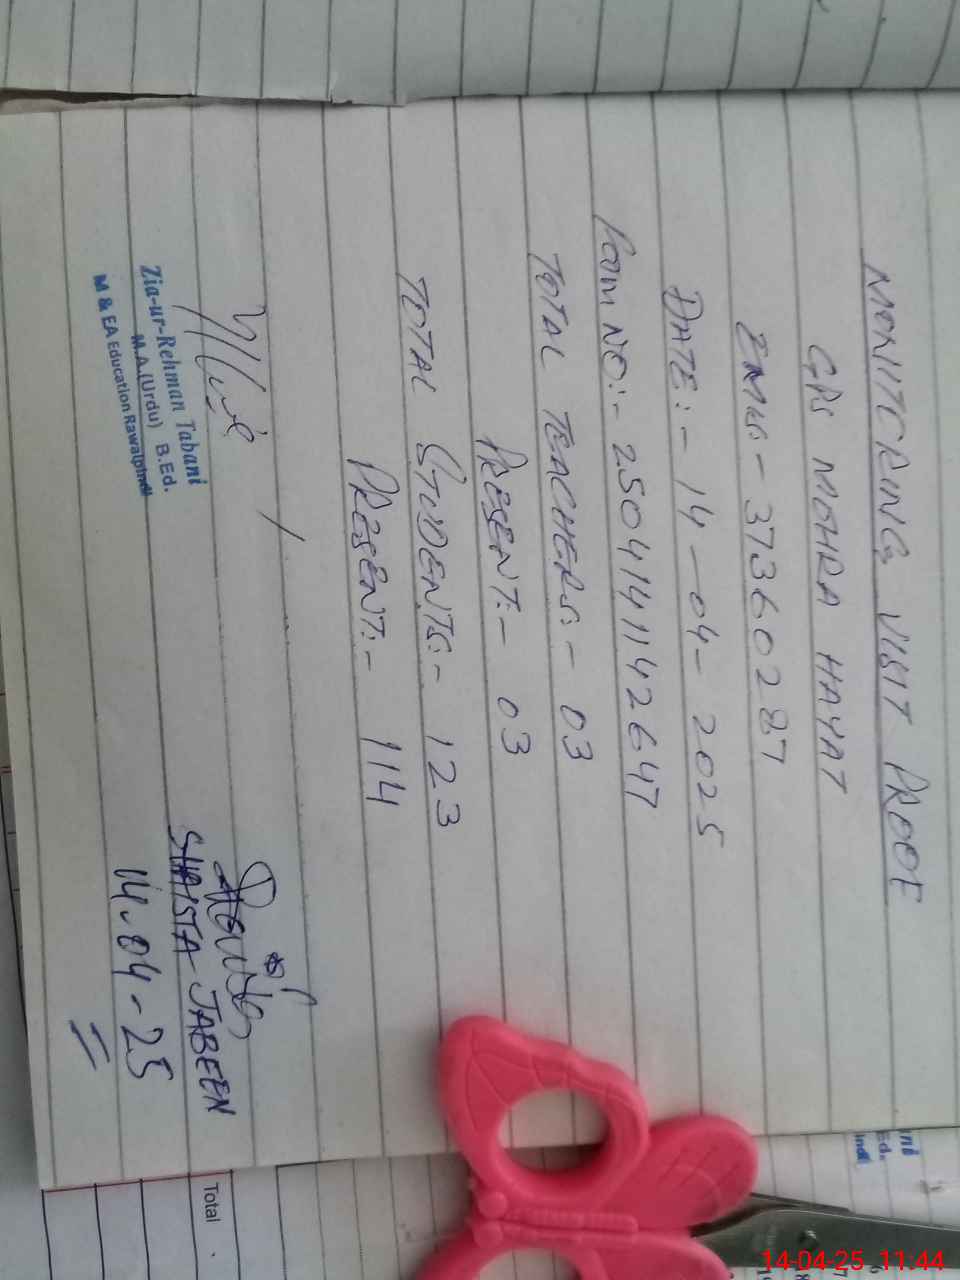 MONITORING VISIT PROOF
GPS MOHRA HAYAT
EMIS:- 37360287
DATE:- 14-04-2025
Form NO:- 250414114 2647
TOTAL TEACHERS:- 03
PRESENT:- 03
TOTAL STUDENTS:- 123
PRESENT:- 114
Zia-ur-Rehman Tabani
M.A.(Urdu) B.Ed.
M & EA Education Rawalpindi
SHAISTA JABEEN
14-04-25
Total
14-04-25 11:44